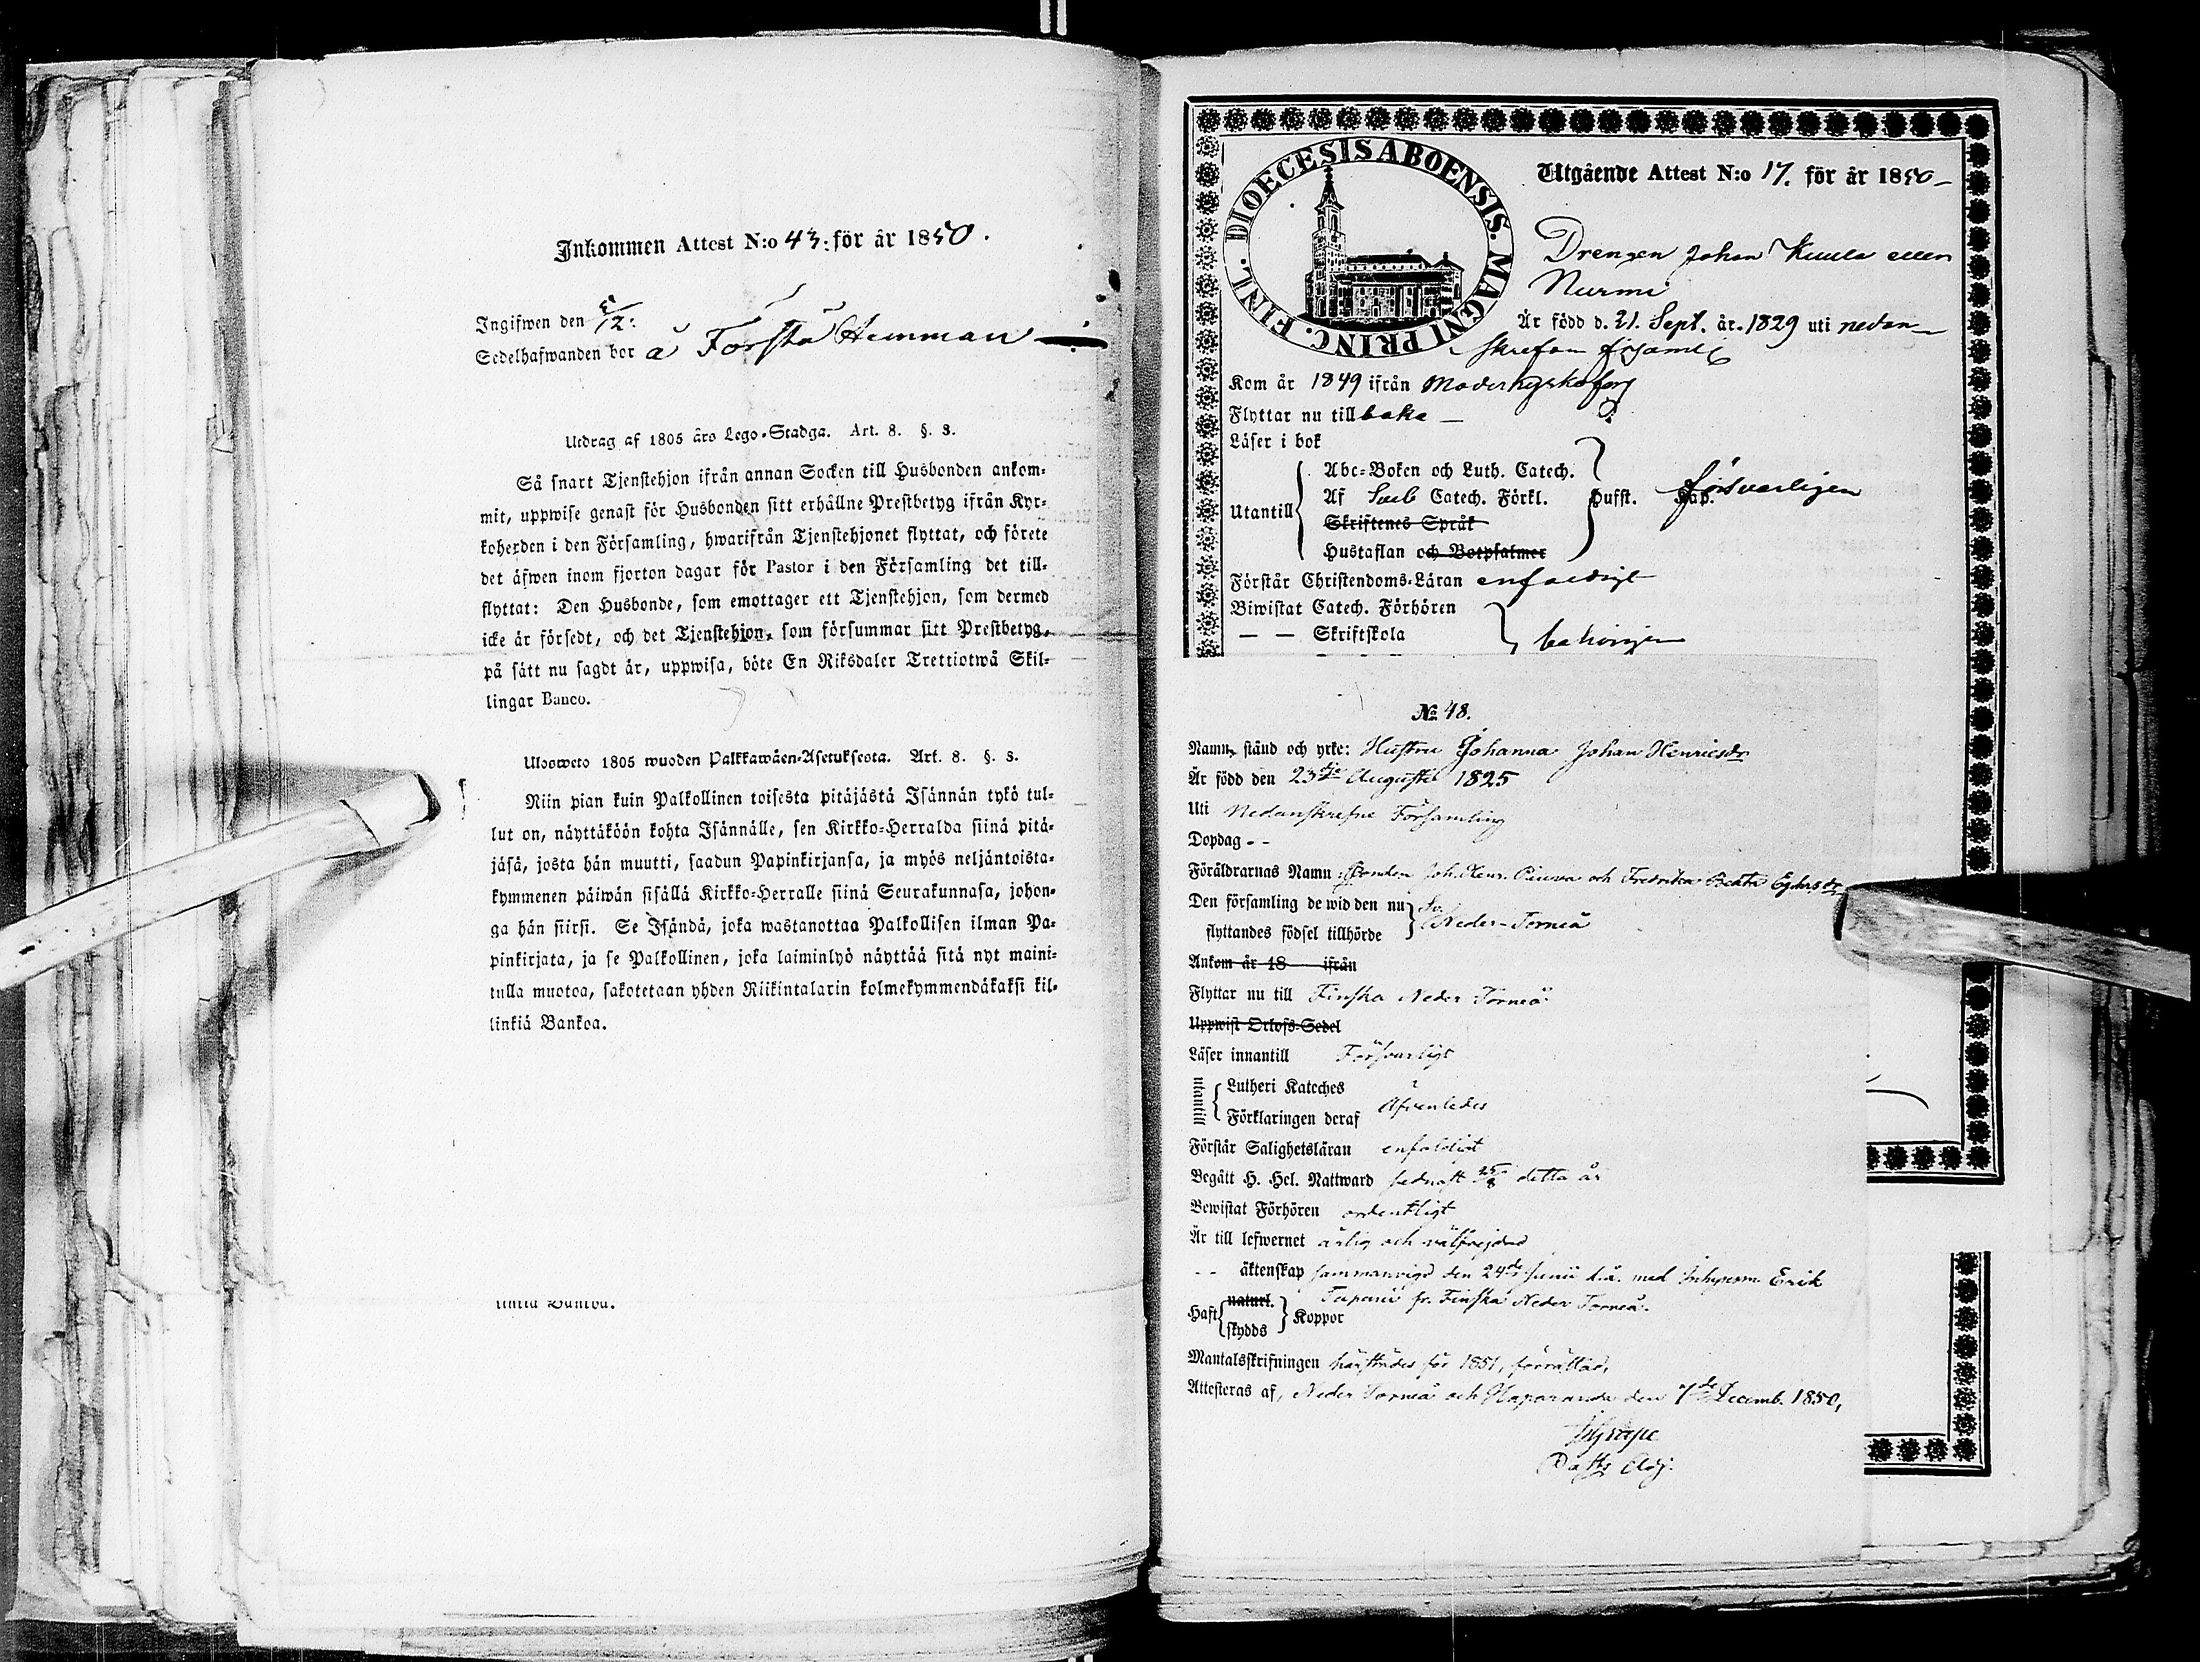 Inkommen Attest N:o 43. för år 1850.
Ingifwen den 5/12.
Sedelhafwanden bor å Första Hemman
Utdrag af 1805 års Lego-Stadga. Art. 8. §. 3.
Så snart Tjenstehjon ifrån annan Socken till Husbonden ankom-
mit, uppwise genast för Husbonden sitt erhållne Prestbetyg ifrån Kyr-
koherden i den Församling, hwarifrån Tjenstehjonet flyttat, och förete
det äfwen inom fjorton dagar för Pastor i den Församling det till-
flyttat: Den Husbonde, som emottager ett Tjenstehjon, som dermed
icke är försedt, och det Tjenstehjon, som försummar sitt Prestbetyg,
på sätt nu sagdt är, uppwisa, böte En Riksdaler Trettiotwå Skil-
lingar Banco.
Ulosweto 1805 wuoden Palkkawäen-Asetuksesta. Art. 8. §. 3.
Niin pian kuin Palkollinen toisesta pitäjästä Isännän tykö tul-
lut on, näyttäköön kohta Isännälle, sen Kirkko-Herralda siinä pitä-
jäsä, josta hän muutti, saadun Papinkirjansa, ja myös neljäntoista-
kymmenen päiwän sisällä Kirkko-Herralle siinä Seurakunnasa, johon-
ga hän siirsi. Se Isändä, joka wastanottaa Palkollisen ilman Pa-
pinkirjata, ja se Palkollinen, joka laiminlyö näyttää sitä nyt maini-
tulla muotoa, sakotetaan yhden Riikintalarin kolmekymmendäkaksi kil-
linkiä Bankoa.
linkiä Bankoa.
DIOECESIS ABOENSIS. MAGNI PRINC. FINL.
Utgående Attest N:o 17. för år 1850
Drengen Johan Kuula eller
Nurmi
Är född d. 21. Sept. år 1829 uti nedan-
skrefven församl
Kom år 1849 ifrån Moderkyrkoförs
Flyttar nu till baka
Läser i bok
Abc-Boken och Luth. Catech.
Utantill Af Sveb Catech. Förkl. Hufst. Kap. försvarligen
Skriftenes Språk
Hustaflan och Botpsalmer
Förstår Christendoms-Läran enfaldigt
Biwistat Catech. Förhören
— — Skriftskola behörigen
No 48.
Namn, stånd och yrke: Hustru Johanna Johan Henricsdr
Är född den 23dje Augusti 1825
Uti Nedanskrefne Församling
Dopdag - -
Föräldrarnas Namn Bonden Joh. Henr. och Fredrika Beata
Den församling de wid den nu Sv.
flyttandes födsel tillhörde Neder-Torneå
Ankom år 18 ifrån
Flyttar nu till Finska Neder Torneå
Uppwist Orlofs-Sedel
Läser innantill Försvarligt
utantill Lutheri Kateches
Förklaringen deraf Äfvenledes
Förstår Salighetsläran enfaldigt
Begått H. Hel. Nattward sednast 25/8 detta år
Bewistat Förhören ordentligt
Är till lefwernet ärlig och välfrejdad
- - äktenskap sammanvigd den 24de Junii d.å. med Inhysesm. Erik
Tapani fr. Finska Neder Torneå.
Haft naturl. skydds Koppor
Mantalsskrifningen härstädes för 1851, förrättad,
Attesteras af, Neder Torneå och Haparanda den 7de Decemb. 1850,
Past. Adj.